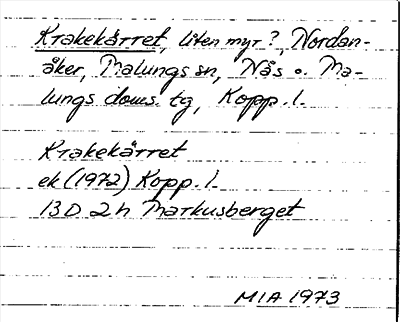 Krakekärret, liten myr?, Nordan-
åker, Malungs sn, Nås o. Ma-
lungs doms. tg, Kopp. l.
Krakekärret
ek (1972) Kopp. l.
13D 2h Markusberget
MIA 1973